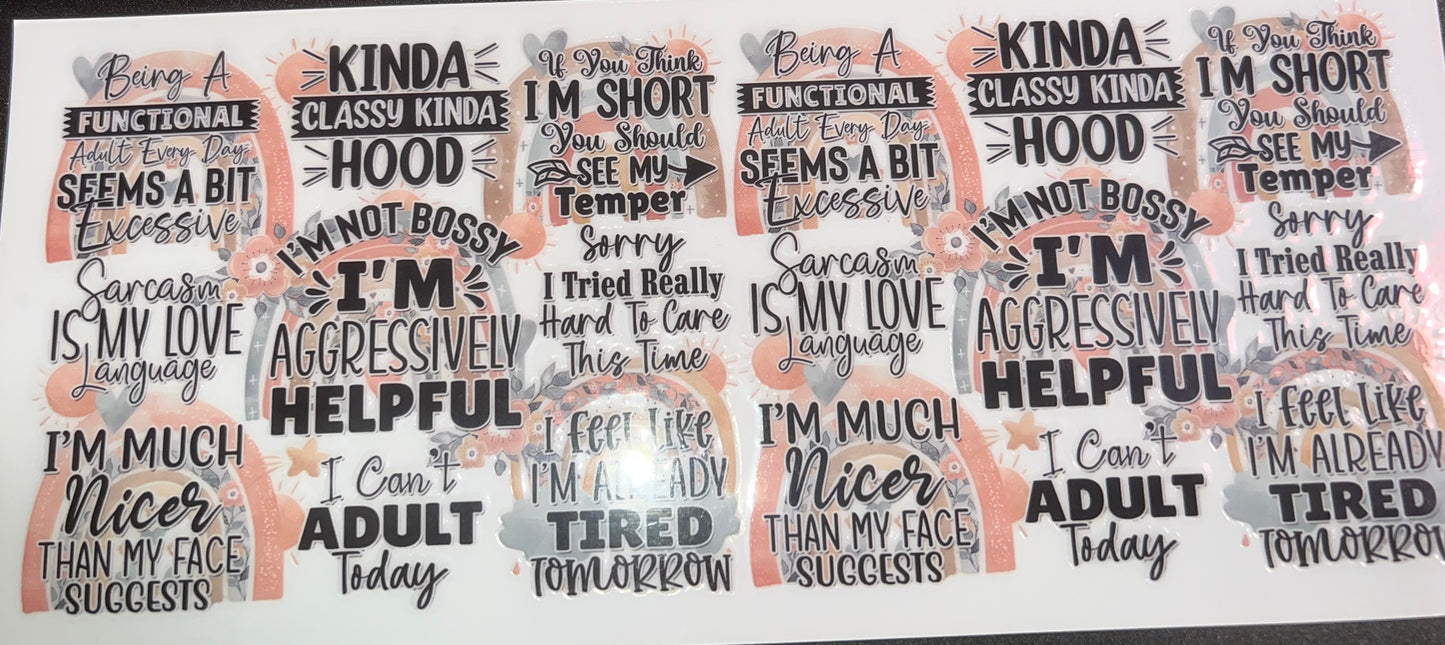 Being A
FUNCTIONAL
Adult Every Day
SEEMS A BIT
Excessive
KINDA
CLASSY KINDA
HOOD
If You Think
I'M SHORT
You Should
SEE MY
Temper
Being A
FUNCTIONAL
Adult Every Day
SEEMS A BIT
Excessive
KINDA
CLASSY KINDA
HOOD
If You Think
I'M SHORT
You Should
SEE MY
Temper
Sarcasm
IS MY LOVE
Language
I'M NOT BOSSY
I'M
AGGRESSIVELY
HELPFUL
Sorry
I Tried Really
Hard To Care
This Time
Sarcasm
IS MY LOVE
Language
I'M NOT BOSSY
I'M
AGGRESSIVELY
HELPFUL
Sorry
I Tried Really
Hard To Care
This Time
I'M MUCH
Nicer
THAN MY FACE
SUGGESTS
I Can't
ADULT
Today
I Feel Like
I'M ALREADY
TIRED
TOMORROW
I'M MUCH
Nicer
THAN MY FACE
SUGGESTS
I Can't
ADULT
Today
I Feel Like
I'M ALREADY
TIRED
TOMORROW